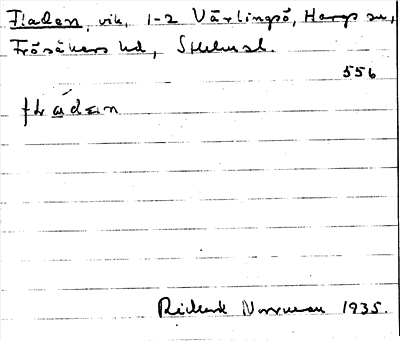 Fladen, vik, 1-2 Värlingsö, Hargs sn,
Frösåkers hd, Sthlmsl.
556
fládɛn
Rickard Norrman 1935.